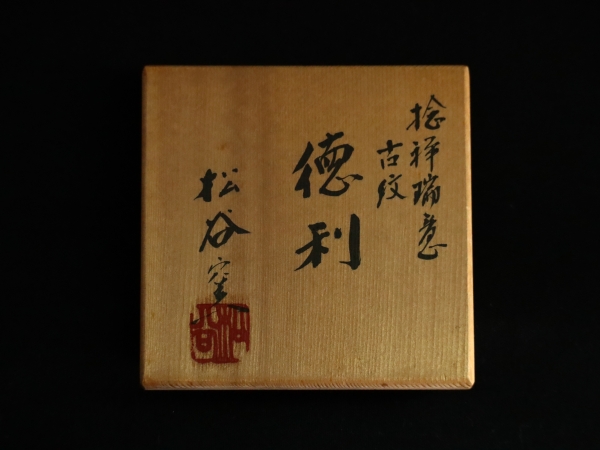 捻祥瑞意
古紋
徳利
松谷窯
松谷